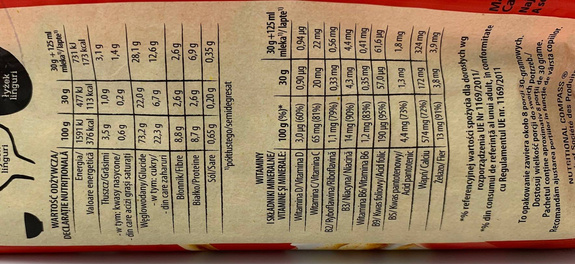 łyżek
linguri
linguri
WARTOŚĆ ODŻYWCZA/
DECLARAȚIE NUTRIȚIONALĂ 100 g 30 g 30 g +125 ml
mleka¹⁾/lapte¹⁾
Energia/ 1591 kJ 477 kJ 731 kJ
Valoare energetică 376 kcal 113 kcal 173 kcal
Tłuszcz/Grăsimi 3,5 g 1,0 g 3,1 g
- w tym: kwasy nasycone/
- din care acizi grași saturați 0,6 g 0,2 g 1,4 g
Węglowodany/Glucide 73,2 g 22,0 g 28,1 g
- w tym: cukry/
- din care zaharuri 22,3 g 6,7 g 12,6 g
Błonnik/Fibre 8,8 g 2,6 g 2,6 g
Białko/Proteine 8,7 g 2,6 g 6,9 g
Sól/Sare 0,65 g 0,20 g 0,35 g
¹⁾półtłustego/semidegresat
WITAMINY
I SKŁADNIKI MINERALNE/
VITAMINE ȘI MINERALE: 100 g (%)* 30 g 30 g +125 ml
mleka¹⁾/lapte¹⁾
Witamina D/Vitamina D 3,0 µg (60%) 0,90 µg 0,94 µg
Witamina C/Vitamina C 65 mg (81%) 20 mg 22 mg
B2/ Ryboflawina/Riboflavină 0,33 mg 0,56 mg
B3/ Niacyna/ Niacină 14 mg (90%) 4,3 mg 4,4 mg
Witamina B6/Vitamina B6 1,2 mg 0,35 mg 0,41 mg
B9/ Kwas foliowy/Acid folic 190 µg (95%) 57,0 µg 61,6 µg
B5/ Kwas pantotenowy/
Acid pantotenic 4,4 mg (73%) 1,3 mg 1,8 mg
Wapń/ Calciu 574 mg (72%) 172 mg 324 mg
Żelazo/ Fier 13 mg (91%) 3,8 mg 3,9 mg
*% referencyjnej wartości spożycia dla dorosłych wg
rozporządzenia UE Nr 1169/2011/
*% din consumul de referință al unui adult, în conformitate
cu Regulamentul UE nr. 1169/2011
To opakowanie zawiera około 8 30-gramowych.
Dostosuj wielkość porcji do
Pachetul conține aproximativ de 30 grame.
Recomandăm ajustarea în funcție de vârsta copiilor
NUTRITIONAL COMPASS ®
des Produits